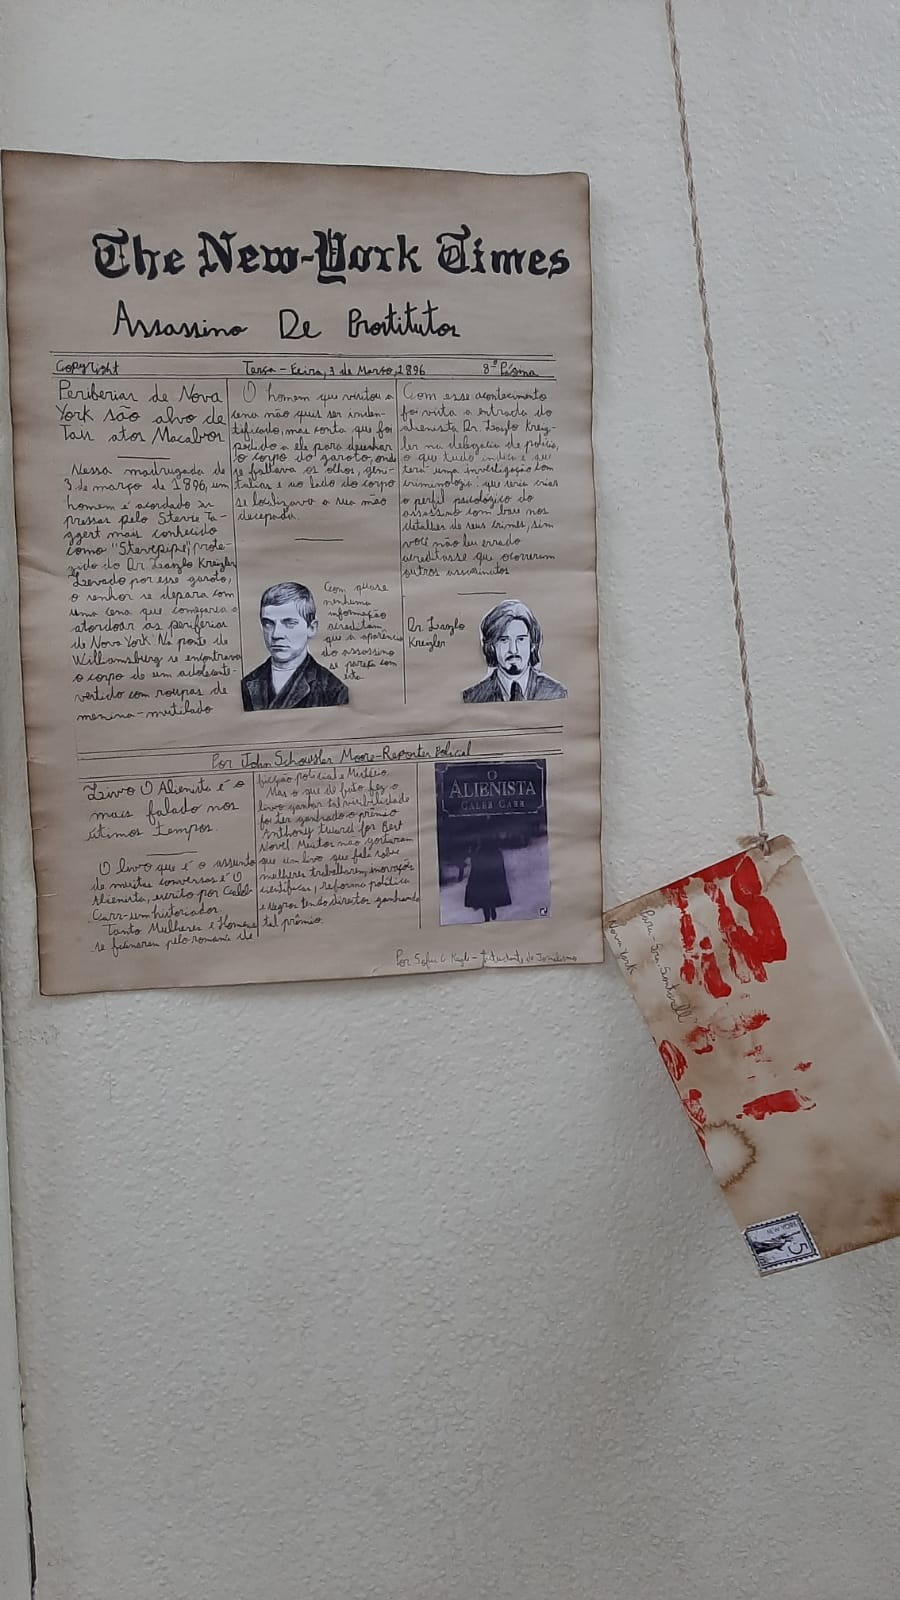 The New-York Times
Assassino De Prostitutos
Copyright
Terça-Feira, 3 de Março, 1896
8ª Página
Periferias de Nova
York são alvo de
Tais atos Macabros
Nessa madrugada de
3 de março de 1896, um
homem é acordado às
pressas pelo Steve Ta-
ggert mais conhecido
como "Stevepipe", prote-
gido do Dr. Laszlo Kreizler
Levado por esse garoto,
o homem se depara com
uma cena que começaria a
atordoar as periferias
de Nova York. Na ponte de
Williamsburg se encontrava
o corpo de um adolescente-
vestido com roupas de
menina-mutilado
O homem que visitou a
cena não quis ser inden-
tificado, mas conta que foi
pedido a ele para desenhar
o corpo do garoto, onde
se faltava os olhos, geni-
tálias e ao lado do corpo
se localizava a sua mão
decepada.
Com quase
nenhuma
informação
acreditam
que a aparência
do assassino
se pareça com
esta
Com esse acontecimento
foi vista a entrada do
alienista Dr. Laszlo Kreiz-
ler na delegacia de polícia,
o que tudo indica é que
terá uma investigação com
criminologia: que seria criar
o perfil psicológico do
assassino com base nos
detalhes de seus crimes, sim
você não leu errado
acreditasse que ocorreram
outros assassinatos
Dr. Laszlo
Kreizler
Por John Schuyler Moore-Repórter Policial
Livro O Alienista é o
mais falado nos
útimos tempos.
O livro que é o assunto
de muitas conversas é O
Alienista, escrito por Caleb
Carr-um historiador.
Tanto Mulheres e Homens
se fissionaram pelo romance de
ficção policial e Mistério.
Mas o que de fato fez o
livro ganhar tal visibilidade
foi ter ganhado o prêmio
Anthony Award for Best
Novel. Muitos não gostaram
que um livro que fala sobre
mulheres trabalharem, inovações
científicas, reforma política
e negros tendo direitos, ganhando
tal prêmio.
O
ALIENISTA
CALEB CARR
Por Sofia C. - Estudante de Jornalismo
Para-Sra. Santorelli
Nova York
NEW YORK
5